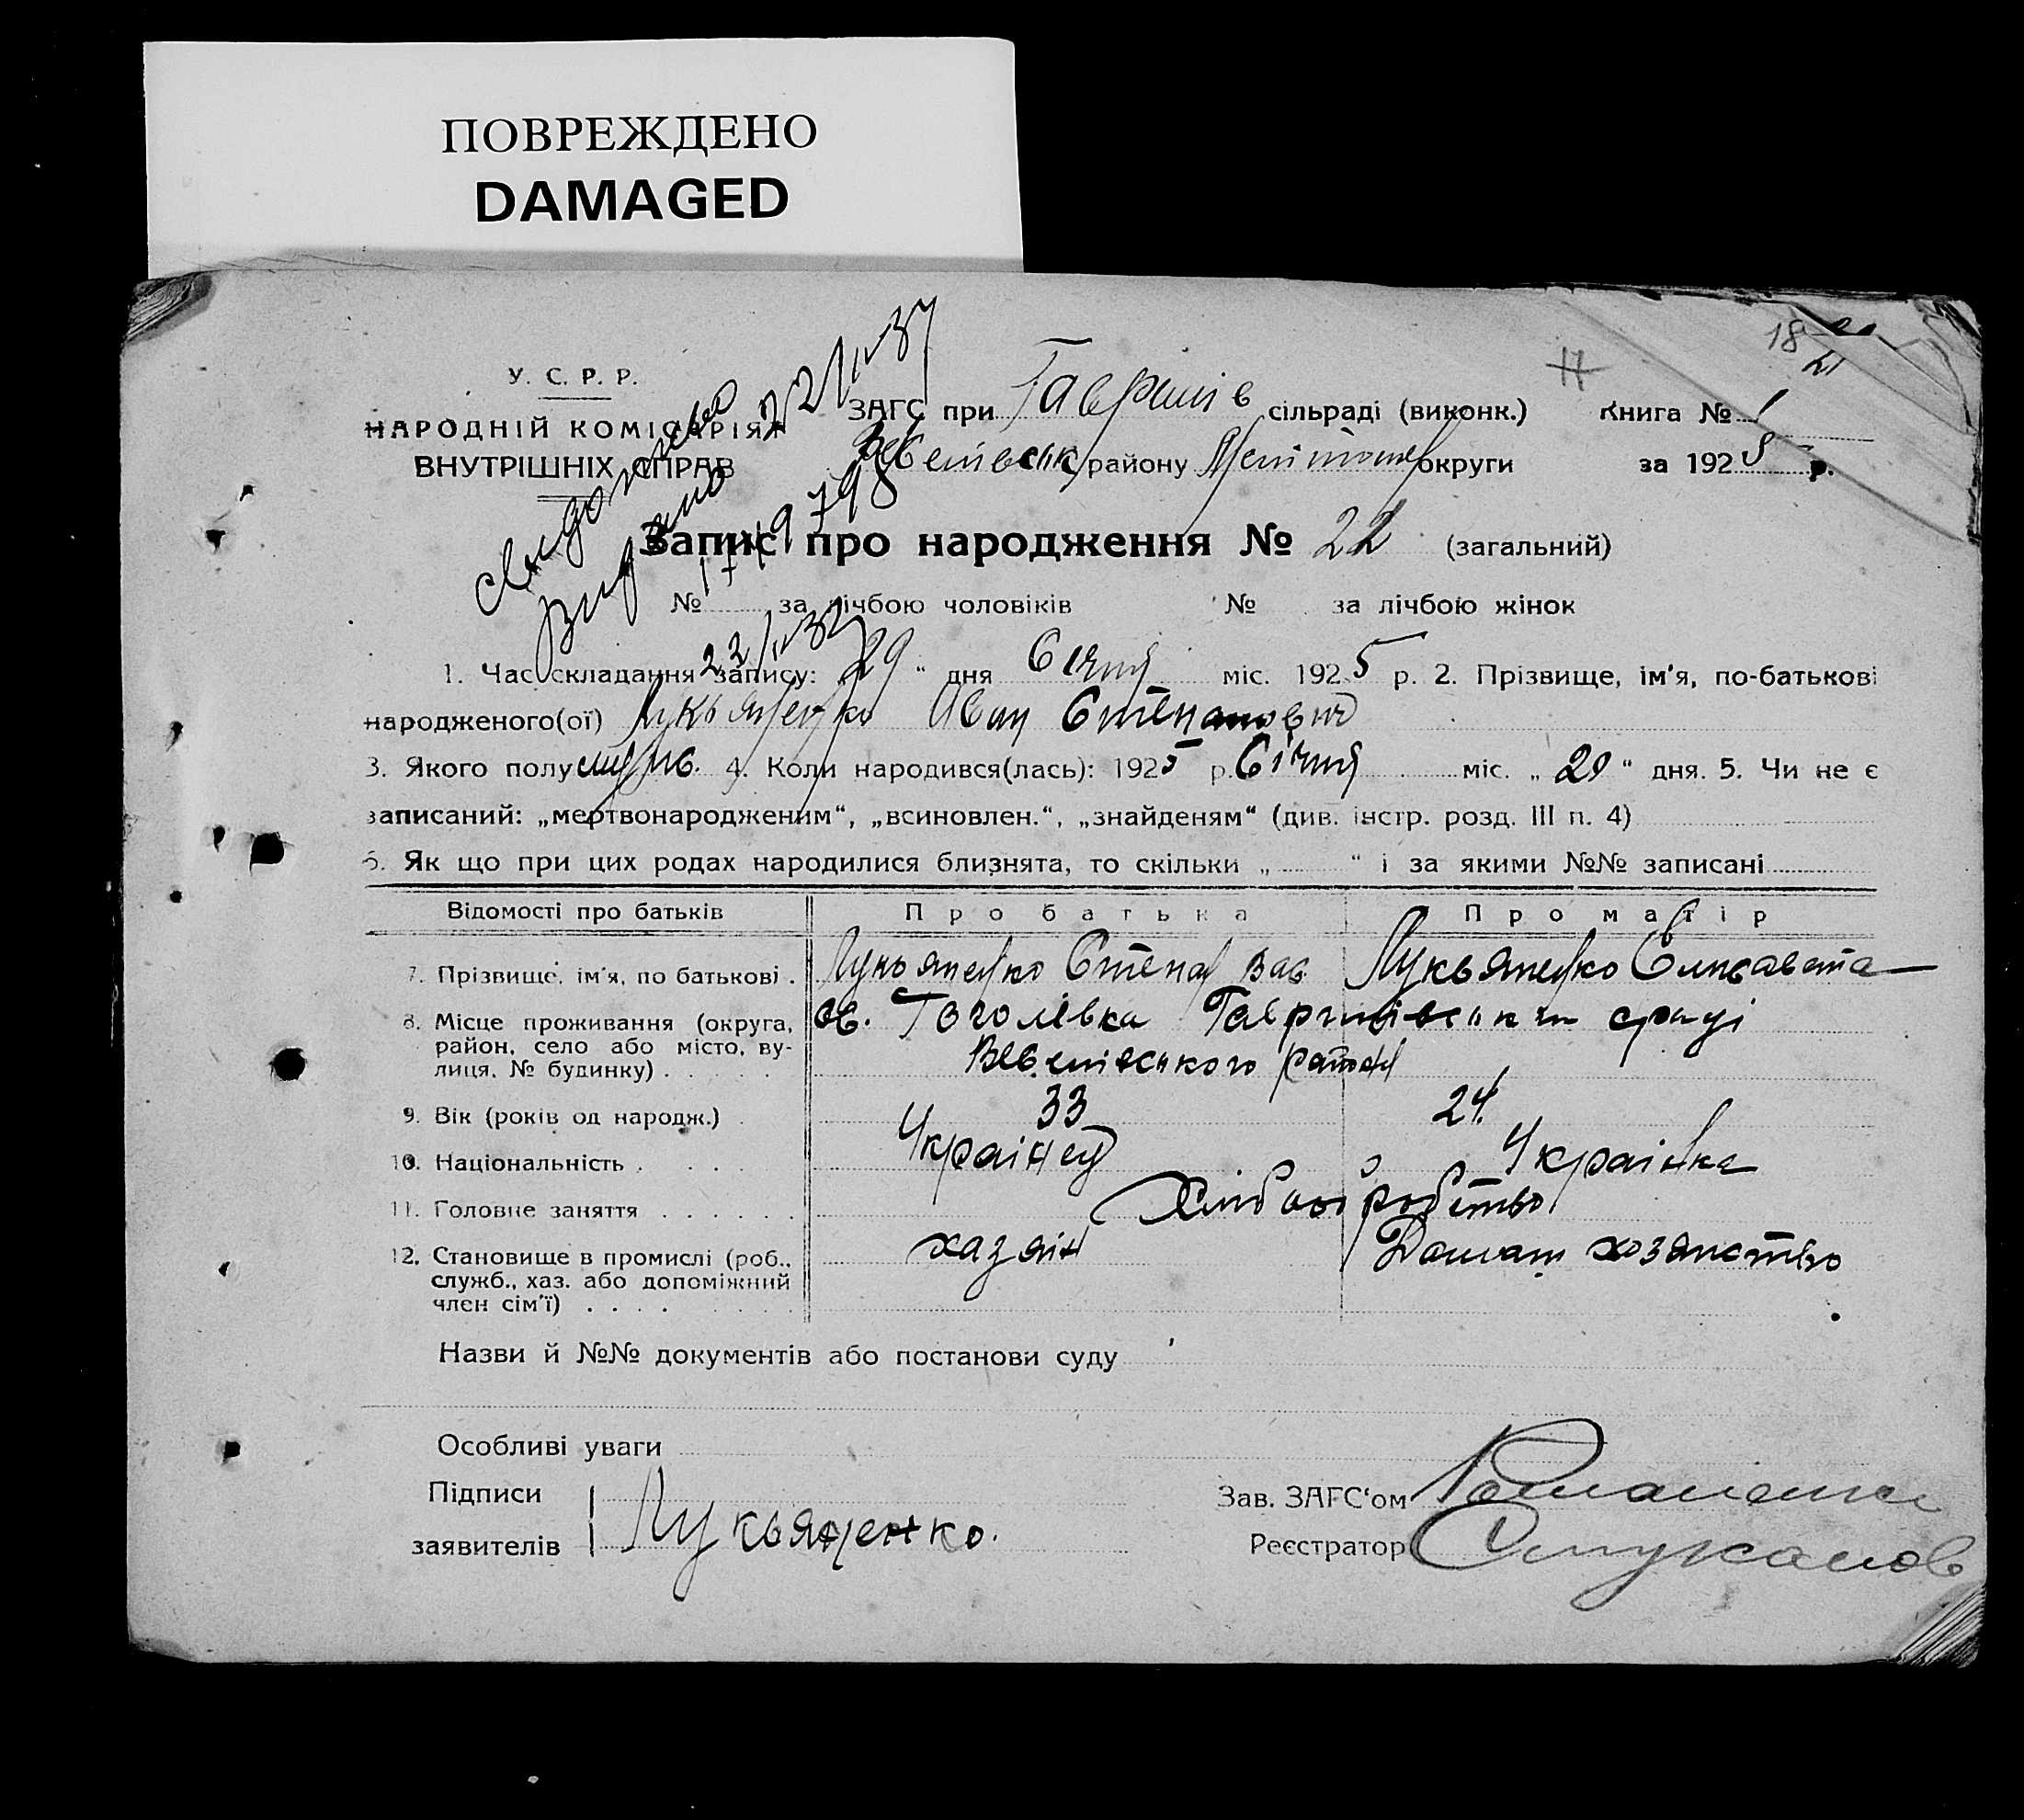 ПОВРЕЖДЕНО
DAMAGED
18
21
У. С. Р. Р.
НАРОДНІЙ КОМІСАРІЯТ
ВНУТРІШНІХ СПРАВ
ЗАГС при Гаврилів сільраді (виконк.) Книга № 1
району округи за 1925 р.
Свидоцтво 22/II 37
Видано 22/II 37
Запис про народження № 22 (загальний)
№ за лічбою чоловіків № за лічбою жінок
1. Час складання запису: „29“ дня Січня міс. 1925 р. 2. Прізвище, ім'я, по-батькові
народженого(ої) Лукьяненко Іван Степанович
3. Якого полу 4. Коли народився(лась): 1925 р. Січня міс. „20“ дня. 5. Чи не є
записаний: „мертвонародженим“, „всиновлен.“, „знайденям“ (див. інстр. розд. III п. 4)
6. Як що при цих родах народилися близнята, то скільки „ “ і за якими №№ записані
Відомості про батьків Про батька Про матір
7. Прізвище, ім'я, по батькові . Лукьяненко Степан Вас Лукьяненко Єлисавета
8. Місце проживання (округа, район, село або місто, вулиця, № будинку) Гоголівка
району
9. Вік (років од народж.) 33 24
10. Національність Українец Українка
11. Головне заняття Хліборобство
12. Становище в промислі (роб., служб., хаз. або допоміжний член сім'ї) хазяін Домаш хозяиство
Назви й №№ документів або постанови суду
Особливі уваги
Підписи
заявителів Лукьяненко.
Зав. ЗАГС‘ом
Реєстратор